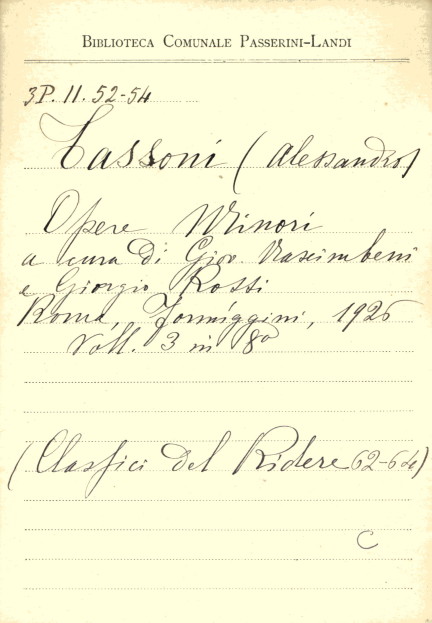 BIBLIOTECA COMUNALE PASSERINI-LANDI
3P. II. 52-54
Tassoni (Alessandro)
Opere Minori
a cura di Giov. Nascimbeni
e Giorgio Rossi
Roma, Formiggini, 1926
Voll. 3 in 8º
(Classici del Ridere 62-64)
C